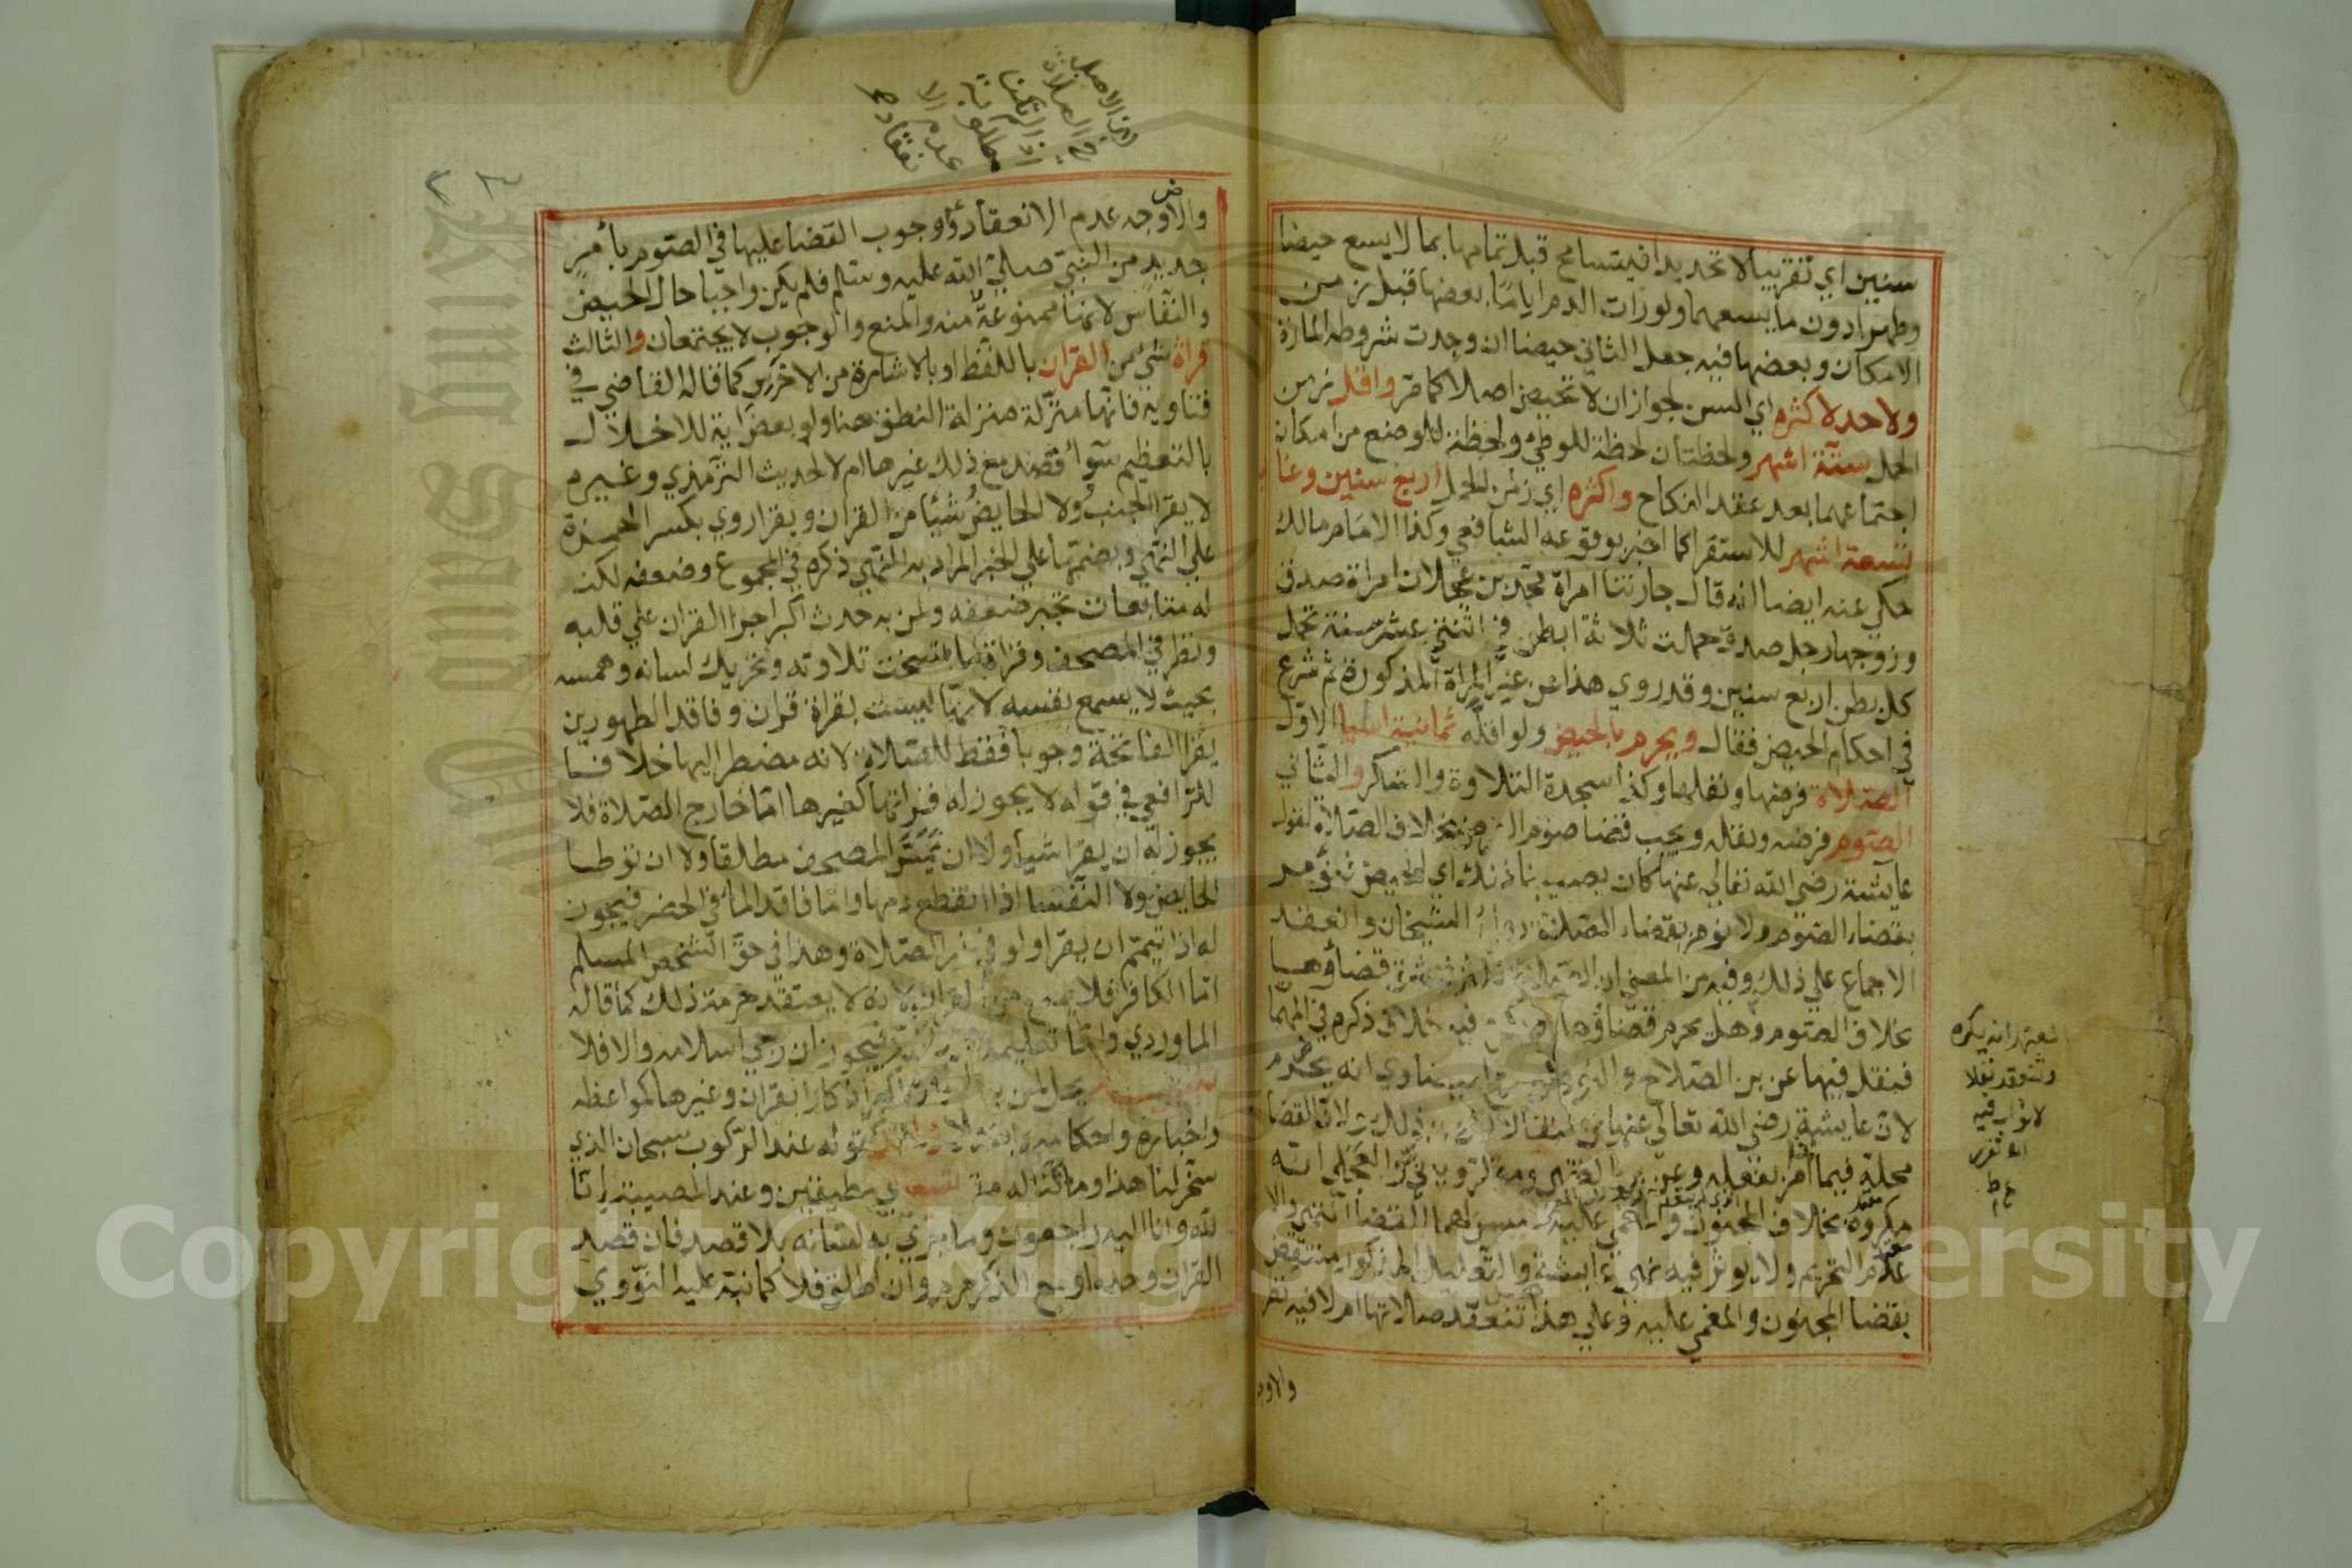 سنين اي تقريبا لا تحديدا فيتسامح قبل تمامها بما لا يسع حيضا
وطهرا دون ما يسعهما ولو رات الدم اياما بعضها قبل زمن
الامكان وبعضها فيه جعل الثاني حيضا ان وجدت شروطه المارة
ولا حد لاكثره اي السن لجواز ان لا تحيض اصلا كما مر واقل زمن
الحمل ستة اشهر ولحظتان لحظة للوطئ ولحظة للوضع من امكان
اجتماعهما بعد عقد النكاح واكثره اي زمن الحمل اربع سنين وغالبه
تسعة اشهر للاستقرا كما اخبر بوقوعه الشافعي وكذا الامام مالك
حكي عنه ايضا انه قال جارتنا امراة محمد بن عجلان امراة صدق
وزوجها رجل صدق حملت ثلاثة ابطن في اثنتي عشر سنة تحمل
كل بطن اربع سنين وقد روي هذا عن غير المراة المذكورة ثم شرع
في احكام الحيض فقال ويحرم بالحيض ولو اقله ثمانية اشيا الاول
الصلاة فرضها ونفلها وكذا سجدة التلاوة والشكر والثاني
الصوم فرضه ونفله ويجب قضا صوم الفرض بخلاف الصلاة لقول
عايشة رضي الله تعالي عنها كان يصيبنا ذلك اي الحيض فنؤمر
بقضاء الصوم ولا نؤمر بقضاء الصلاة رواه الشيخان وانعقد
الاجماع علي ذلك وفيه من المعني ان الصلاة تكثر فيشق قضاؤها
بخلاف الصوم وهل يحرم قضاؤها فيه خلاف ذكره في المهمات
فنقل فيها عن بن الصلاح والنووي عن البيضاوي انه يحرم
لان عايشة رضي الله تعالي عنها نهت السائلة عن ذلك ولان القضا
محله فيما امر بفعله وعن بن الصباغ والروياني والعجلي انه
مكروه بخلاف المجنون والمغمي عليه فيسن لهما القضا انتهي والا
عدم التحريم ولا يؤثر فيه نهي عايشة والتعليل المذكور منتقض
بقضا المجنون والمغمي عليه وعلي هذا تنعقد صلاتها ام لا فيه نظر
والاوجه
المعتمد انه يكره
وتنعقد نفلا
لا ثواب فيه
ع ط
لان الاصل
في الصلاة
عدم
والاوجه عدم الانعقاد ووجوب القضا عليها في الصوم بأمر
جديد من النبي صلي الله عليه وسلم فلم يكن واجبا حال الحيض
والنفاس لانها ممنوعة منه والمنع والوجوب لا يجتمعان والثالث
قراة شي من القران باللفظ او بالاشارة من الاخرس كما قاله القاضي في
فتاويه فانها منزلة منزلة النطق هنا ولو بعض اية للاخلال
بالتعظيم سوآ أقصد مع ذلك غيرها ام لا لحديث الترمذي وغيره
لا يقرا الجنب ولا الحايض شيئا من القران ويقرا روي بكسر الهمزة
علي النهي وبضمها علي الخبر المراد به النهي ذكره في المجموع وضعفه لكن
له متابعات تجبر ضعفه ولمن به حدث اكبر اجرا القران علي قلبه
ونظر في المصحف وقراة ما نسخت تلاوته وتحريك لسانه وهمسه
بحيث لا يسمع نفسه لانها ليست بقراة قران وفاقد الطهورين
يقرا الفاتحة وجوبا فقط للصلاة لانه مضطر اليها خلافا
للرافعي في قوله لا يجوز له قراتها كغيرها اما خارج الصلاة فلا
يجوز له ان يقرا شيأ ولا ان يمس المصحف مطلقا ولا ان توطا
الحايض ولا النفسا اذا انقطع دمها واما فاقد الما في الحضر فيجوز
له اذا تيمم ان يقرا ولو في غير الصلاة وهذا في حق الشخص المسلم
اما الكافر فلا يمنع من القران لانه لا يعتقد حرمة ذلك كما قاله
الماوردي واما تعليمه فيجوز ان رجي اسلامه والا فلا
تنبيه يحل لمن به حدث اكبر اذكار القران وغيرها كمواعظه
واخباره واحكامه كقوله عند الركوب سبحان الذي
سخر لنا هذا وما كنا له مقرنين اي مطيقين وعند المصيبة انا
لله وانا اليه راجعون وما جري به لسانه بلا قصد فان قصد
القران وحده او مع الذكر حرم وان اطلق فلا كما نبه عليه النووي